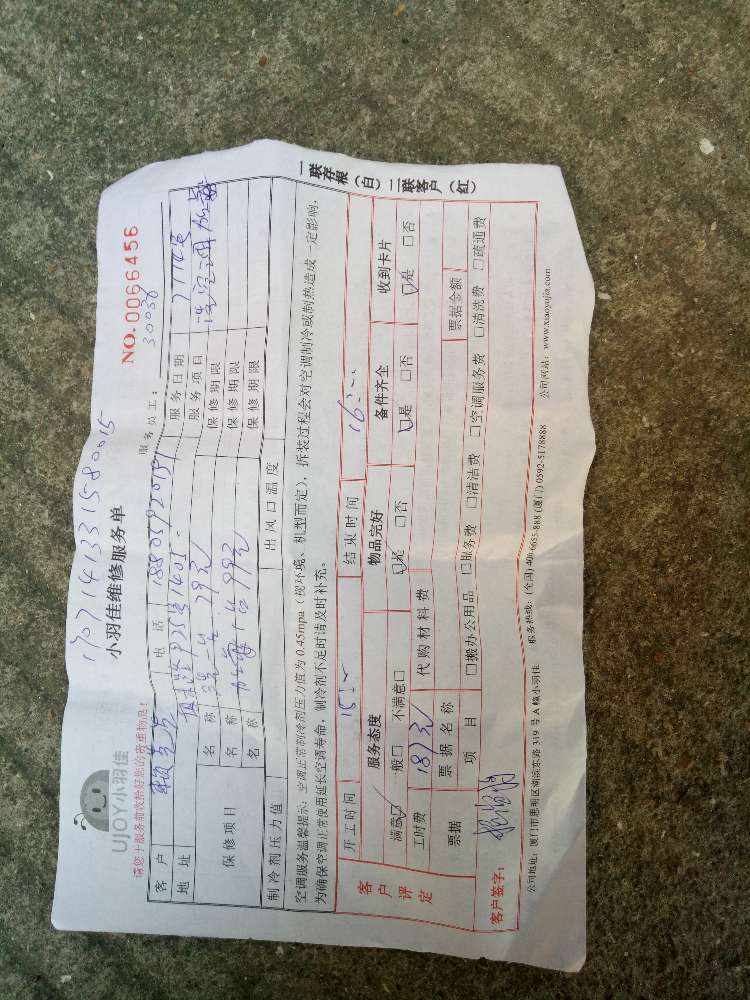 1707141331580015
UJOY小羽佳
小羽佳维修服务单
NO.0066456
请您上服务前收拾好您的贵重物品!
服务员工: 30036
客户 电话 服务日期
地址 服务项目 洗空调
保修项目 名称 洗一台79元 保修期限
名称 保修期限
名称 保修期限
制冷剂压力值 出风口温度
空调服务温馨提示: 空调正常制冷剂压力值为0.45mpa(视环境、机型而定), 拆装过程会对空调制冷或制热造成一定影响,
为确保空调正常使用延长空调寿命, 制冷剂不足时请及时补充。
一联存根(白) 二联客户(红)
客户评定 开工时间 15:-- 结束时间 16:--
服务态度 物品完好 备件齐全 收到卡片
满意☑ 一般□ 不满意□ ☑是 □否 ☑是 □否 ☑是 □否
工时费 187元 代购材料费
票据 票据名称 票据金额
项目 □搬办公用品 □服务费 □清洁费 □空调服务费 □清洗费 □疏通费
客户签字:
公司地址: 厦门市思明区湖滨东路319号A幢小羽佳 服务热线: (全国) 400-6655-888 (厦门) 0592-5178888 公司网站: www.xiaoyujia.com